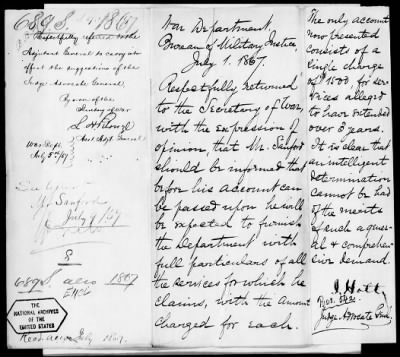 689 S. 1867
Respectfully referred to the
Adjutant General to carry into
effect the suggestions of the
Judge Advocate General
By order of the
Secretary of War
Asst Adjt General
War Dept.
July 5th /67
July 9 /67
8
689 S. also 1867
THE
NATIONAL ARCHIVES
OF THE
UNITED STATES
July 1867.
War Department,
Bureau of Military Justice,
July 1. 1867.
Respectfully returned
to the Secretary of War,
with the expression of
opinion, that Mr. Sanford
should be informed that
before his account can
be passed upon he will
be expected to furnish
the Department with
full particulars of all
the services for which he
claims, with the amount
charged for each.
The only account
now presented
consists of a
single charge
of $1500. for ser-
vices alleged
to have extended
over 3 years.
It is clear that
an intelligent
determination
cannot be had
of the merits
of such a gener-
al & comprehen-
sive demand.
J. Holt
Judge Advocate Genl.